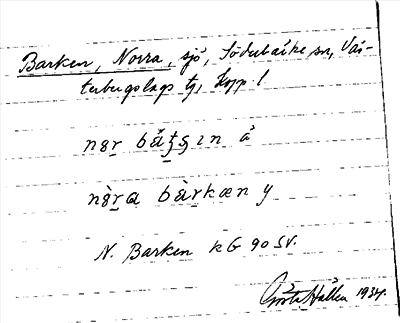 Barken, Norra, sjö, Söderbärke sn, Väs-
terbergslags tg, Kopp. l
nɞr bàtʂin å
nɞ̀ra bàrkæn y
N. Barken KG 90 SV.
Gösta Hallén 1934.